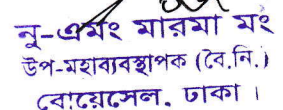 নু-এমং মারমা মং
উপ-মহাব্যবস্থাপক (বৈ.নি.)
বোয়েসেল, ঢাকা।